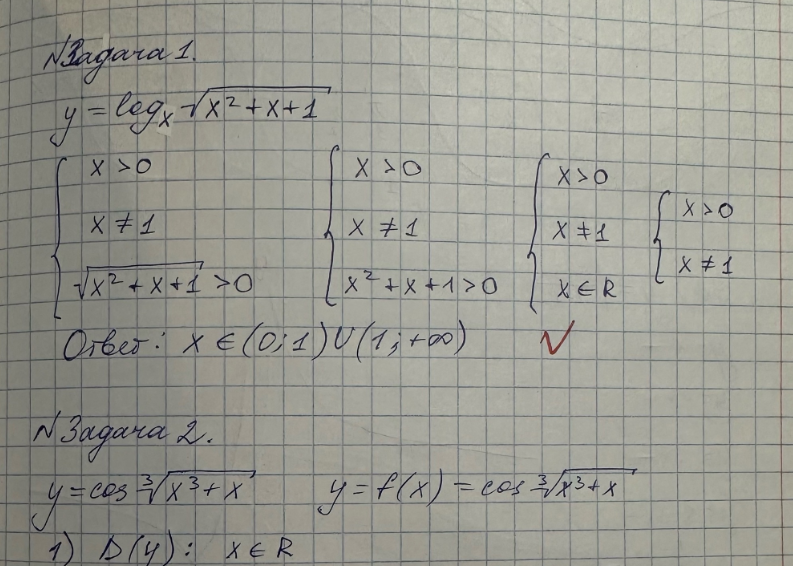 №Задача 1.
y = log_x √(x² + x + 1)
{ x > 0 { x > 0 { x > 0 { x > 0
x ≠ 1 x ≠ 1 x ≠ 1 x ≠ 1
√(x² + x + 1) > 0 x² + x + 1 > 0 x ∈ R
Ответ: x ∈ (0; 1) U (1; +∞) √
№ Задача 2.
y = cos ∛(x³ + x) y = f(x) = cos ∛(x³ + x)
1) D(y): x ∈ R